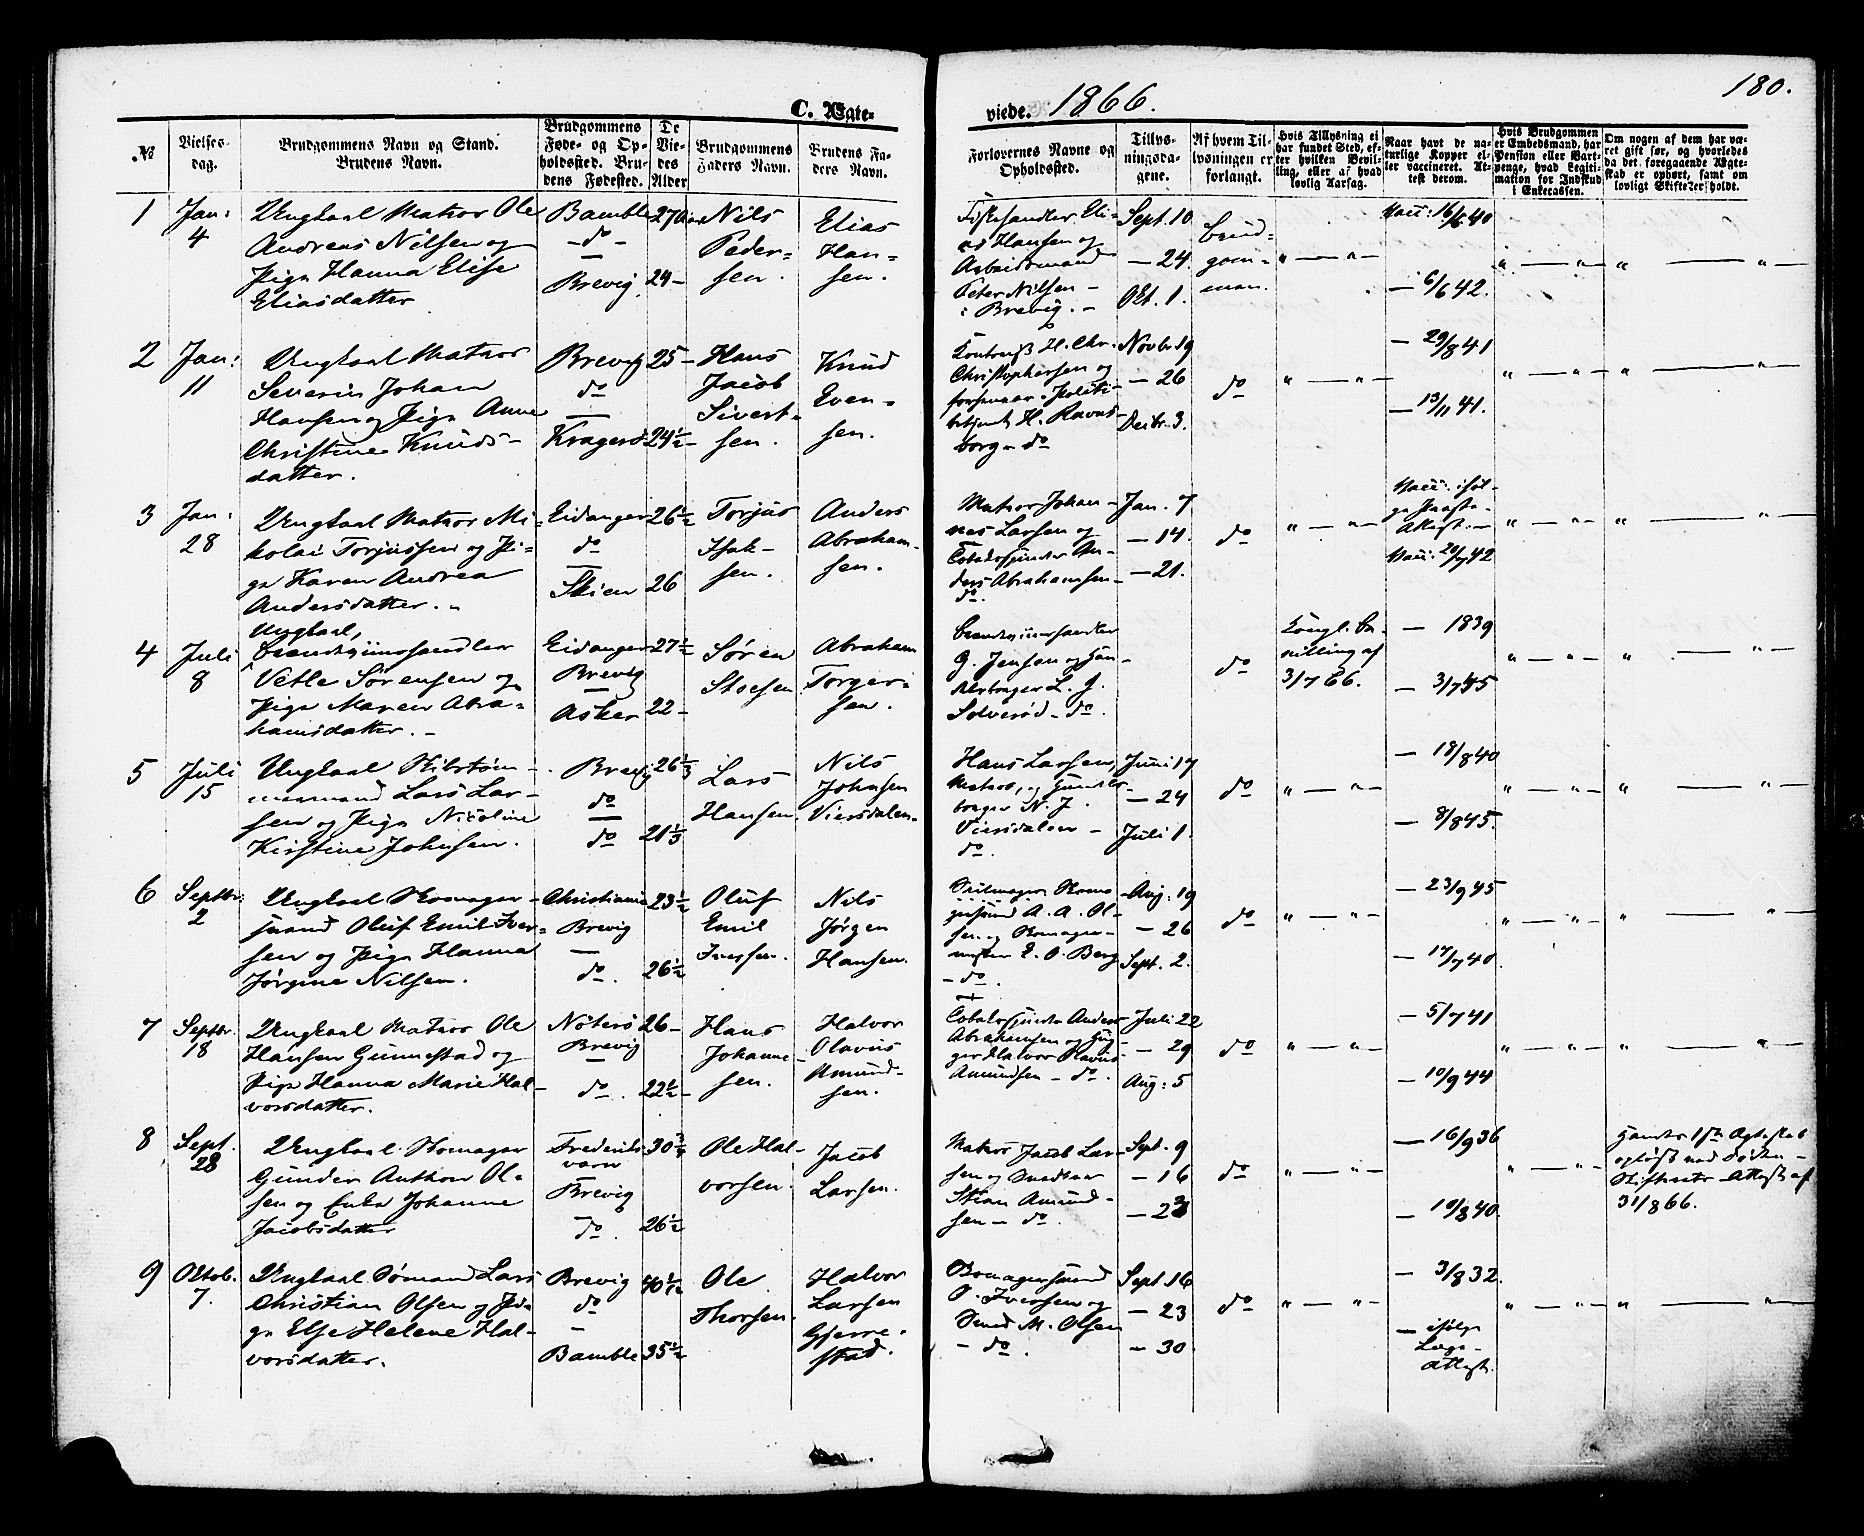 180.
C. Ægte-
viede. 1866.
No
Vielses-
dag.
Brudgommens Navn og Stand.
Brudens Navn.
Brudgommens
Føde- og Op-
holdssted. Bru-
dens Fødested.
De
Vie-
des
Alder
Brudgommens
Faders Navn.
Brudens Fa-
ders Navn.
Forlovernes Navne og
Opholdssted.
Tillys-
ningsda-
gene.
Af hvem Til-
lysningen er
forlangt.
Hvis Tillysning ei
har fundet Sted, ef-
ter hvilken Bevil-
ling, eller af hvad
lovlig Aarsag.
Naar havt de na-
turlige Kopper el-
ler vaccineret. At-
test derom.
Hvis Brudgommen
er Embedsmand, har
Pension eller Vart-
penge, hvad Legiti-
mation for Indskud
i Enkecassen.
Om nogen af dem har væ-
ret gift før, og hvorledes
da det foregaaende Ægte-
skab er ophørt, samt om
lovligt Skifte er holdt.
1
Jan:
4
Ungkarl Matros Ole
Andreas Nilsen og
Pige Hanna Elise
Eliasdatter
Bamble
do
Brevig
27
24
Nils
Peder-
sen.
Elias
Han-
sen.
Fiskehandler Eli-
as Hansen og
Arbeidsmand
Peter Nilsen
i Brevig.
Sept. 10
24.
Okt. 1.
Brud-
gom-
men.
" "
Vacc: 16/6 40
6/6 42.
" " "
" "
2
Jan:
11
Ungkarl Matros
Severin Johan
Hansen og Pige Anne
Christine Knuds-
datter.
Brevig
do
Kragerö
25
24½
Hans
Jacob
Sivert-
sen.
Knud
Even-
sen.
H. Chr.
Christophersen og
Politi-
betjent H. Ravns-
borg do
Novb. 19
26
Decbr. 3.
do
" "
29/8 41
13/11 41.
" " "
" "
3
Jan:
28
Ungkarl Matros Ni-
kolai Torjussen og Pi-
ge Karen Andrea
Andersdatter.
Eidanger
do
Skien
26½
26
Torjus
Isak-
sen.
Anders
Abraham-
sen.
Matros Johan-
nes Larsen og
An-
ders Abrahamsen
do.
Jan. 7
14.
21.
do
" "
Vacc: iföl-
ge Præste-
Attest.
Vacc: 20/7 42
" " "
" "
4
Juli
8
Ungkarl,
Brændeviinshandler
Vetle Sørensen og
Pige Maren Abra-
hamsdatter.
Eidanger
Brevig
Asker
27½
22
Søren
Abraham
Torger-
sen.
Brændeviinshandler
G. Jensen og Han-
delsborger L. J.
Solverød do.
do
Kongl. Be-
villing af
3/7 66.
1839
3/7 45
" " "
" "
5
Juli
15
Ungkarl Skibstøm-
mermand Lars Lar-
sen og Pige Nicoline
Kirstine Johnsen.
Brevig
do
do
26⅓
21⅓
Lars
Hansen.
Nils
Johnsen
Viersdalen.
Hans Larsen,
Matros, og Handels-
borger N. J.
Viersdalen
do.
Juni 17
24
Juli 1.
do
" "
18/8 40
8/8 45.
" " "
" "
6
Septbr:
2
Ungkarl Skomager-
svend Oluf Emil Iver-
sen og Pige Hanna
Jørgine Nilsen.
Christiania
Brevig
do.
23½
26½
Oluf
Emil
Iversen.
Nils
Jørgen
Hansen.
Skoma-
gersvend A. A. Ol-
sen og Skomager-
mester E. O. Berg
do.
Aug: 19
26
Sept. 2.
do
" "
23/9 45
17/7 40.
" " "
" "
7
Septbr.
18
Ungkarl Matros Ole
Hansen Gunnestad og
Pige Hanna Marie Hal-
vorsdatter.
Nøterö
Brevig
do.
26
22½
Hans
Johanne-
sen.
Halvor
Olavus
Amund-
sen.
Anders
Abrahamsen og
Halvor Olavus
Amundsen do.
Juli 22
29
Aug: 5
do
" "
5/7 41
10/9 44
" " "
" "
8
Sept.
28
Ungkarl Skomager
Gunder Anthon Ol-
sen og Enke Johanne
Jacobsdatter
Frederiks-
værn
Brevig
do.
30¾
26½
Ole Hal-
vorsen.
Jacob
Larsen.
Matros Jacob Lar-
sen og
Stian Amund-
sen do.
Sept. 9
16
23
do
" "
16/9 36
10/8 40.
" " "
Hendes 1ste Ægteskab
opløst ved Døden
Skifterets Attest af
31/8 66.
9
Oktob.
7.
Ungkarl Sømand Lars
Christian Olsen og Pi-
ge Else Helene Hal-
vorsdatter.
Brevig
do
Bamble
40½
35½
Ole
Thorsen.
Halvor
Larsen
Gjerre-
stad.
O. Iversen og
Smed M. Olsen
do.
Sept 16
23
30
do
" "
3/8 32.
ifølge
Læge-
Attest.
" " "
" "